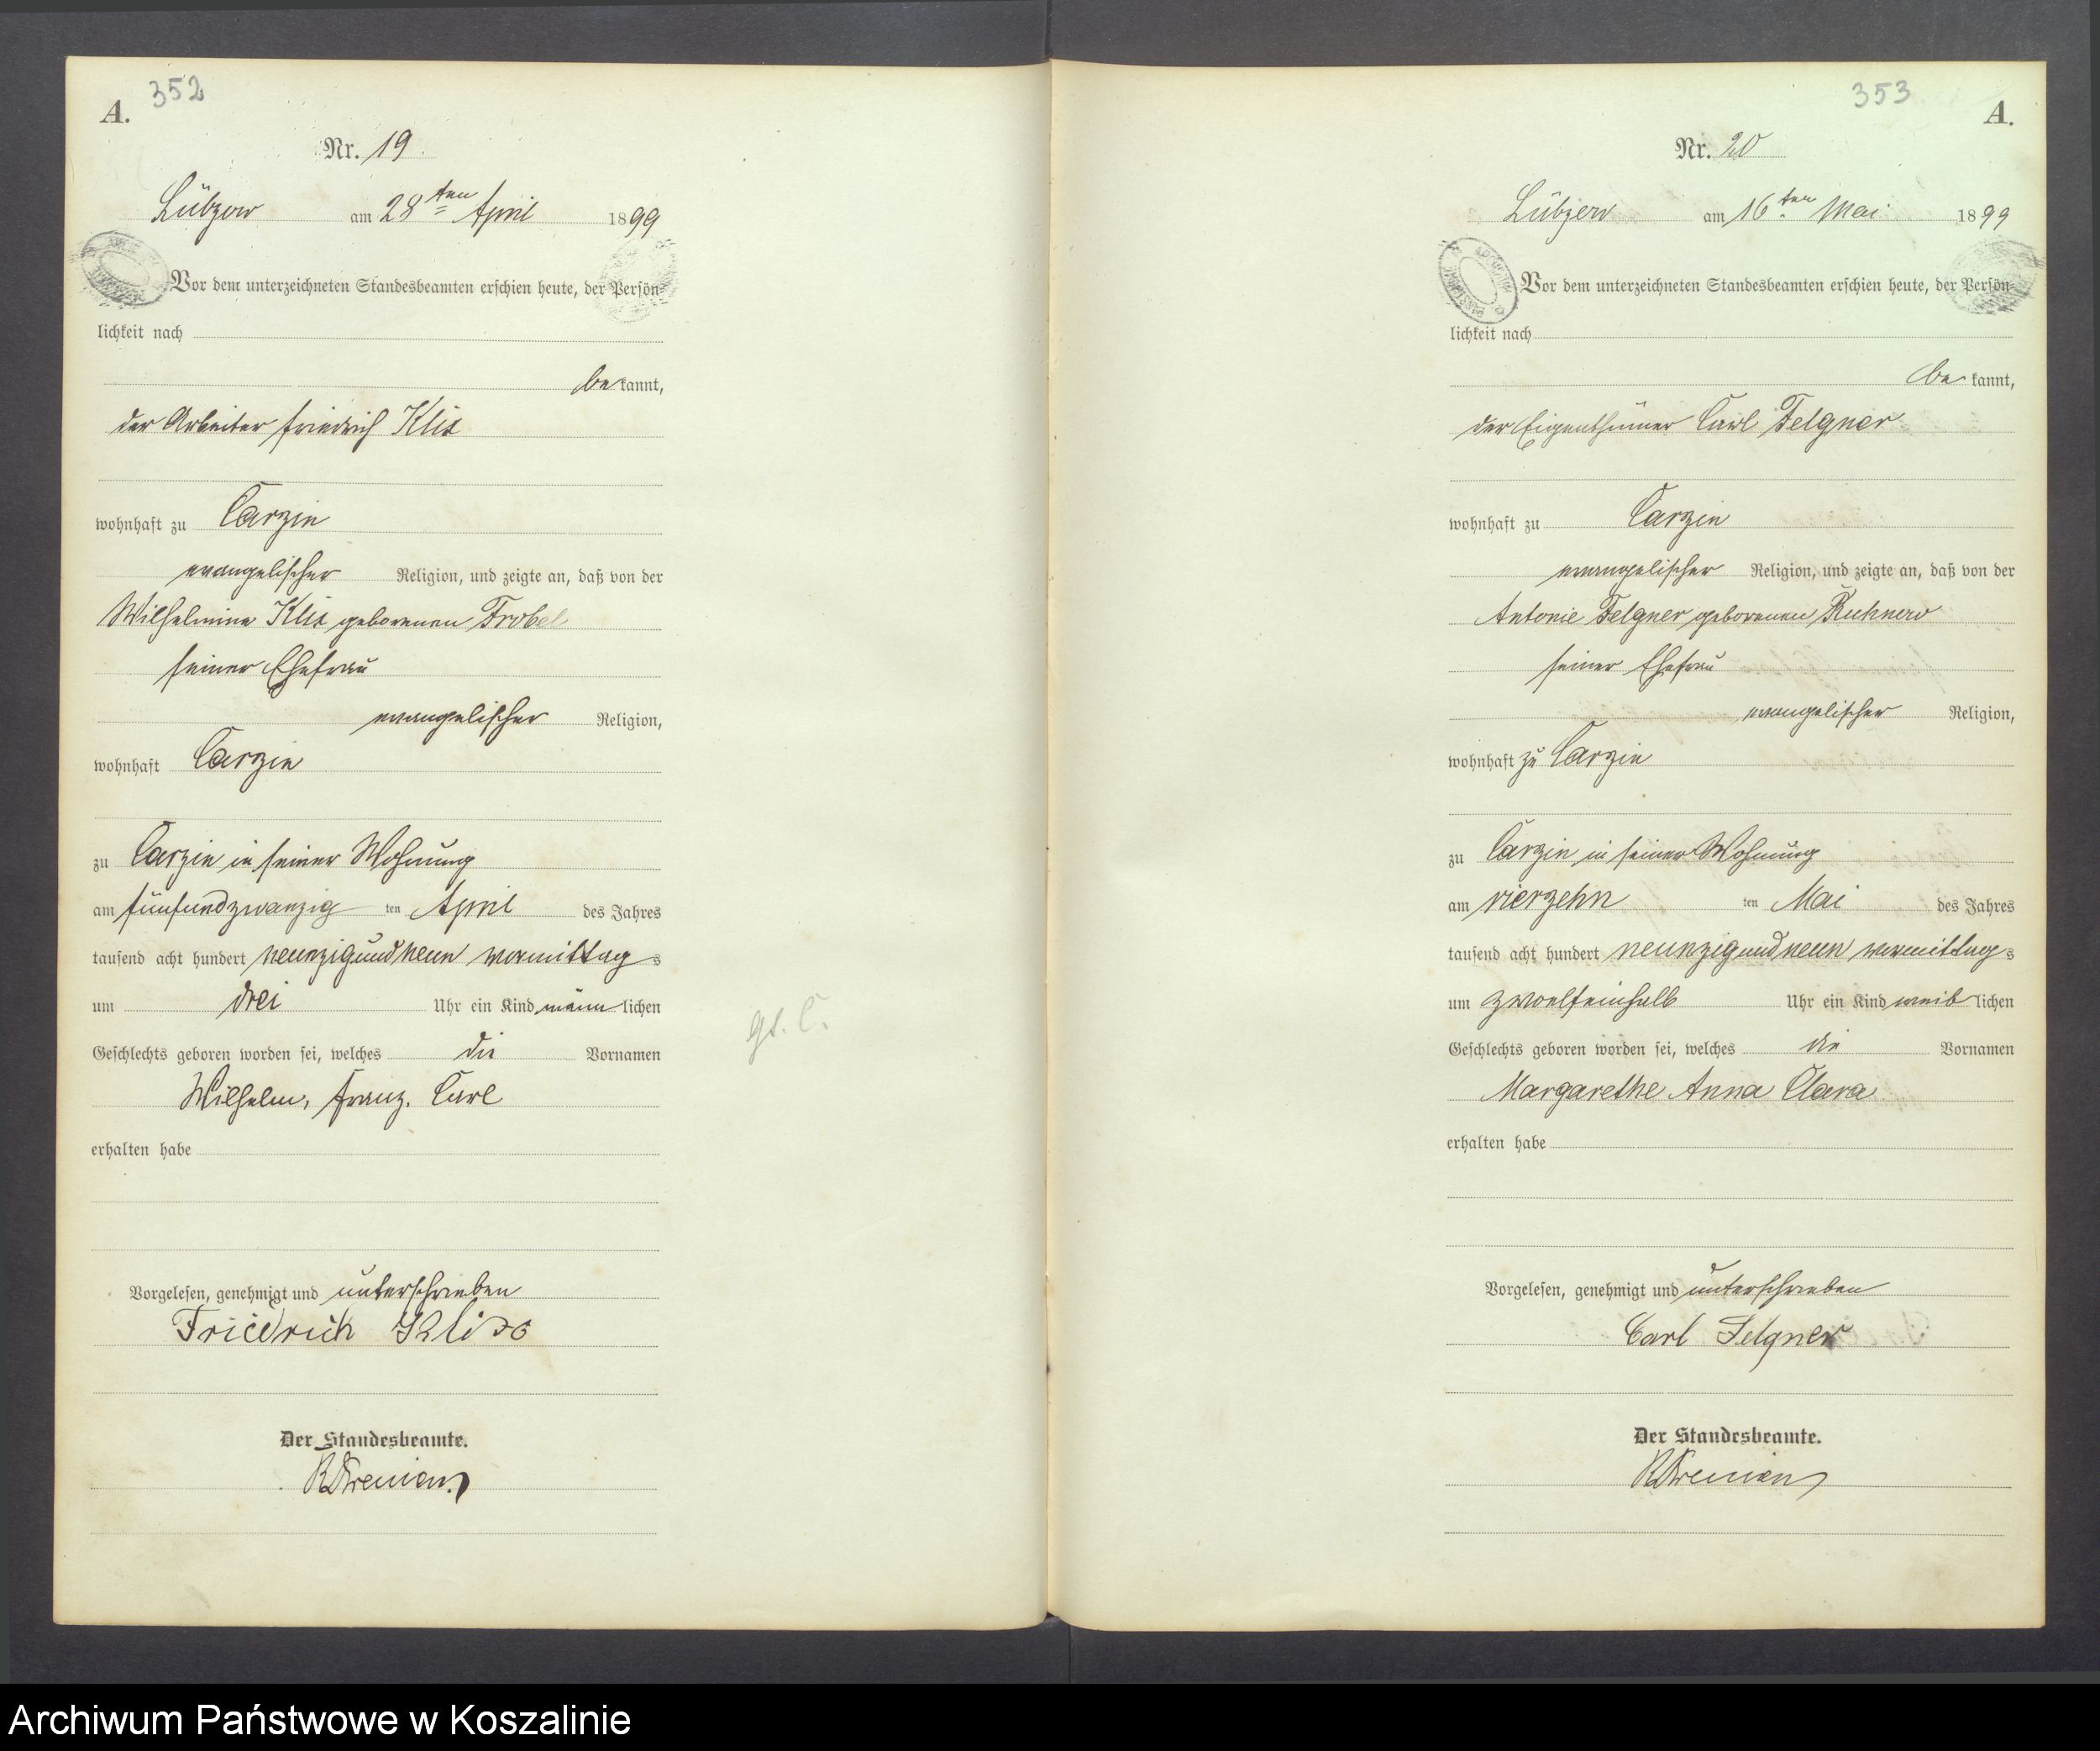 352
A.
Nr. 19
Lübzow am 28ten April 1899
Vor dem unterzeichneten Standesbeamten erschien heute, der Persön-
lichkeit nach
bekannt,
der Arbeiter Friedrich Klix
wohnhaft zu Carzin
evangelischer Religion, und zeigte an, daß von der
Wilhelmine Klix geborenen Trobel
seiner Ehefrau
evangelischer Religion,
wohnhaft Carzin
zu Carzin in seiner Wohnung
am fünfundzwanzig ten April des Jahres
tausend acht hundert neunzigundneun vormittags
um drei Uhr ein Kind männlichen
Geschlechts geboren worden sei, welches die Vornamen
Wilhelm, Franz, Carl
erhalten habe
Vorgelesen, genehmigt und unterschrieben
Friedrich Klix
Der Standesbeamte.
353
A.
Nr. 20
Lübzow am 16ten Mai 1899
Vor dem unterzeichneten Standesbeamten erschien heute, der Persön-
lichkeit nach
bekannt,
der Eigenthümer Carl Felgner
wohnhaft zu Carzin
evangelischer Religion, und zeigte an, daß von der
Antonie Felgner geborenen Kuhnow
seiner Ehefrau
evangelischer Religion,
wohnhaft zu Carzin
zu Carzin in seiner Wohnung
am vierzehn ten Mai des Jahres
tausend acht hundert neunzigundneun vormittags
um zwoelfeinhalb Uhr ein Kind weiblichen
Geschlechts geboren worden sei, welches die Vornamen
Margarethe Anna Clara
erhalten habe
Vorgelesen, genehmigt und unterschrieben
Carl Felgner
Der Standesbeamte.
Archiwum Państwowe w Koszalinie